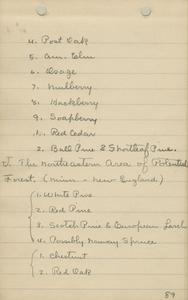 4. Post Oak
5. Am. Elm
6. Osage
7. Mulberry
8. Hackberry
9. Soapberry
1. Red Cedar
2. Bull Pine & Shortleaf Pine.
I. The Northeastern Area of Potential
Forest. (Minn - New England)
1. White Pine
2. Red Pine
3. Scotch Pine & European Larch
4. Possibly Norway Spruce
1. Chestnut
2. Red Oak
89